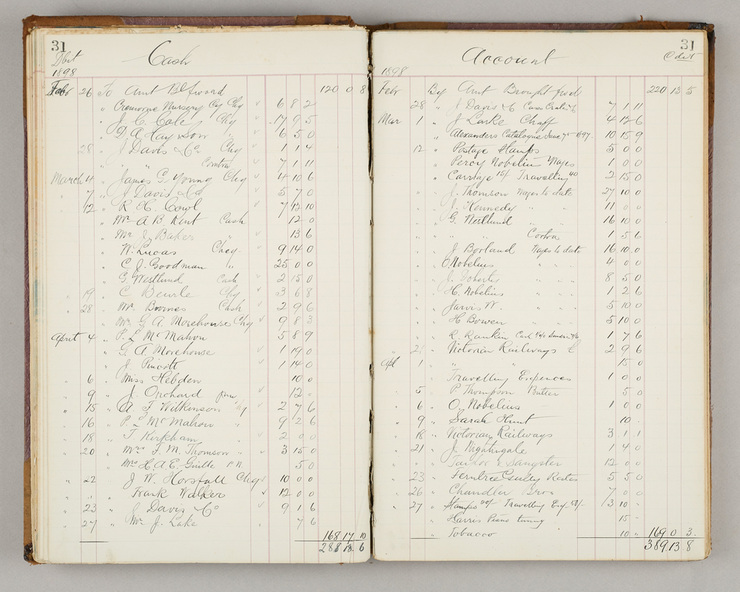 31
Debit
Cash
1898
Feb 26 To Amt Bt forward 120 0 8
" Cremorne Nursery Coy Chq 6 8 2
" J. C. Cole Chq 17 9 5
" G. A. Hay & Son " 6 5 0
28 " J. Davis & Co Chq 1 1 4
" " " Crates 7 1 11
March 4 " James G. Young Chq 4 10 6
" 7 " J. Davis & Co 5 7 0
12 " R. H. Cowl 7 12 10
" Mr A B Kent Cash 12 0
" Mr J. Baker " 13 6
" W. Lucas Chq 9 14 0
" C. J. Goodman " 25 0 0
" G. Westlund Cash 2 15 8
19 " C Chq 3 6 8
28 " Mr Boones Cash 2 9 6
" Mr G. A. Morehouse Chq 9 8 3
April 4 " P. L McMahon 5 8 9
" G A Morehouse 1 19 0
" J. 1 14 0
6 " Miss Hebden 10 0
9 " J. Orchard 12
15 " A. J. Wilkinson 2 7 6
16 " P. L McMahon 9 2 6
18 " T. Kirkham 2 0 0
20 " Mrs J. M. Thomson 3 15 0
" Mrs H. A. E. P.N. 5 0
22 " J. W. Horsfall Chq 10 0 0
" Frank Walker 12 0 0
23 " J. Davis & Co 9 1 6
27 " Mr J. Lake 7 6
168 17 10
288 18 6
31
Credit
Account
1898
Feb By Amt Brought fwd 220 13 5
28 " J Davis & C 7 1 11
Mar 1 " J Larke Chaff 4 12 6
" Alexanders Catalogue 10 15 9
12 " Postage Stamps 5 0 0
" Percy Nobelius Wages 1 0 0
" Carriage Travelling 2 15 0
" J. Thomson Wages to date 27 10 0
" J. Kennedy " 11 0 0
" G. Westlund " 16 10 0
" " " 1 5 6
" J Borland Wages to date 16 10 0
" C Nobelius " " 4 0 0
" J. " " 8 5 0
" H. Nobelius " " 1 2 6
" Jarvis W. " " 5 10 0
" H Bowen " " 5 10 0
" R. Rankin 1 7 6
2 " Victorian Railways 2 9 6
Apl 1 " " " 15 0
" Travelling Expences 1 0 0
5 " P Thompson Butter 5 0
6 " O. Nobelius 1 0 0
9 " Sarah Hunt 10
18 " Victorian Railways 3 1 1
21 " J. Nightingale 1 4 0
" & Sangster 12 0 0
23 " Ferntree Gulley Rates 5 5 0
26 " Chandler Bros 7 0 0
27 " Stamps Travelling Exp 3 10
" Harris Piano tuning 15
" Tobacco 10
169 0 3
389 13 8